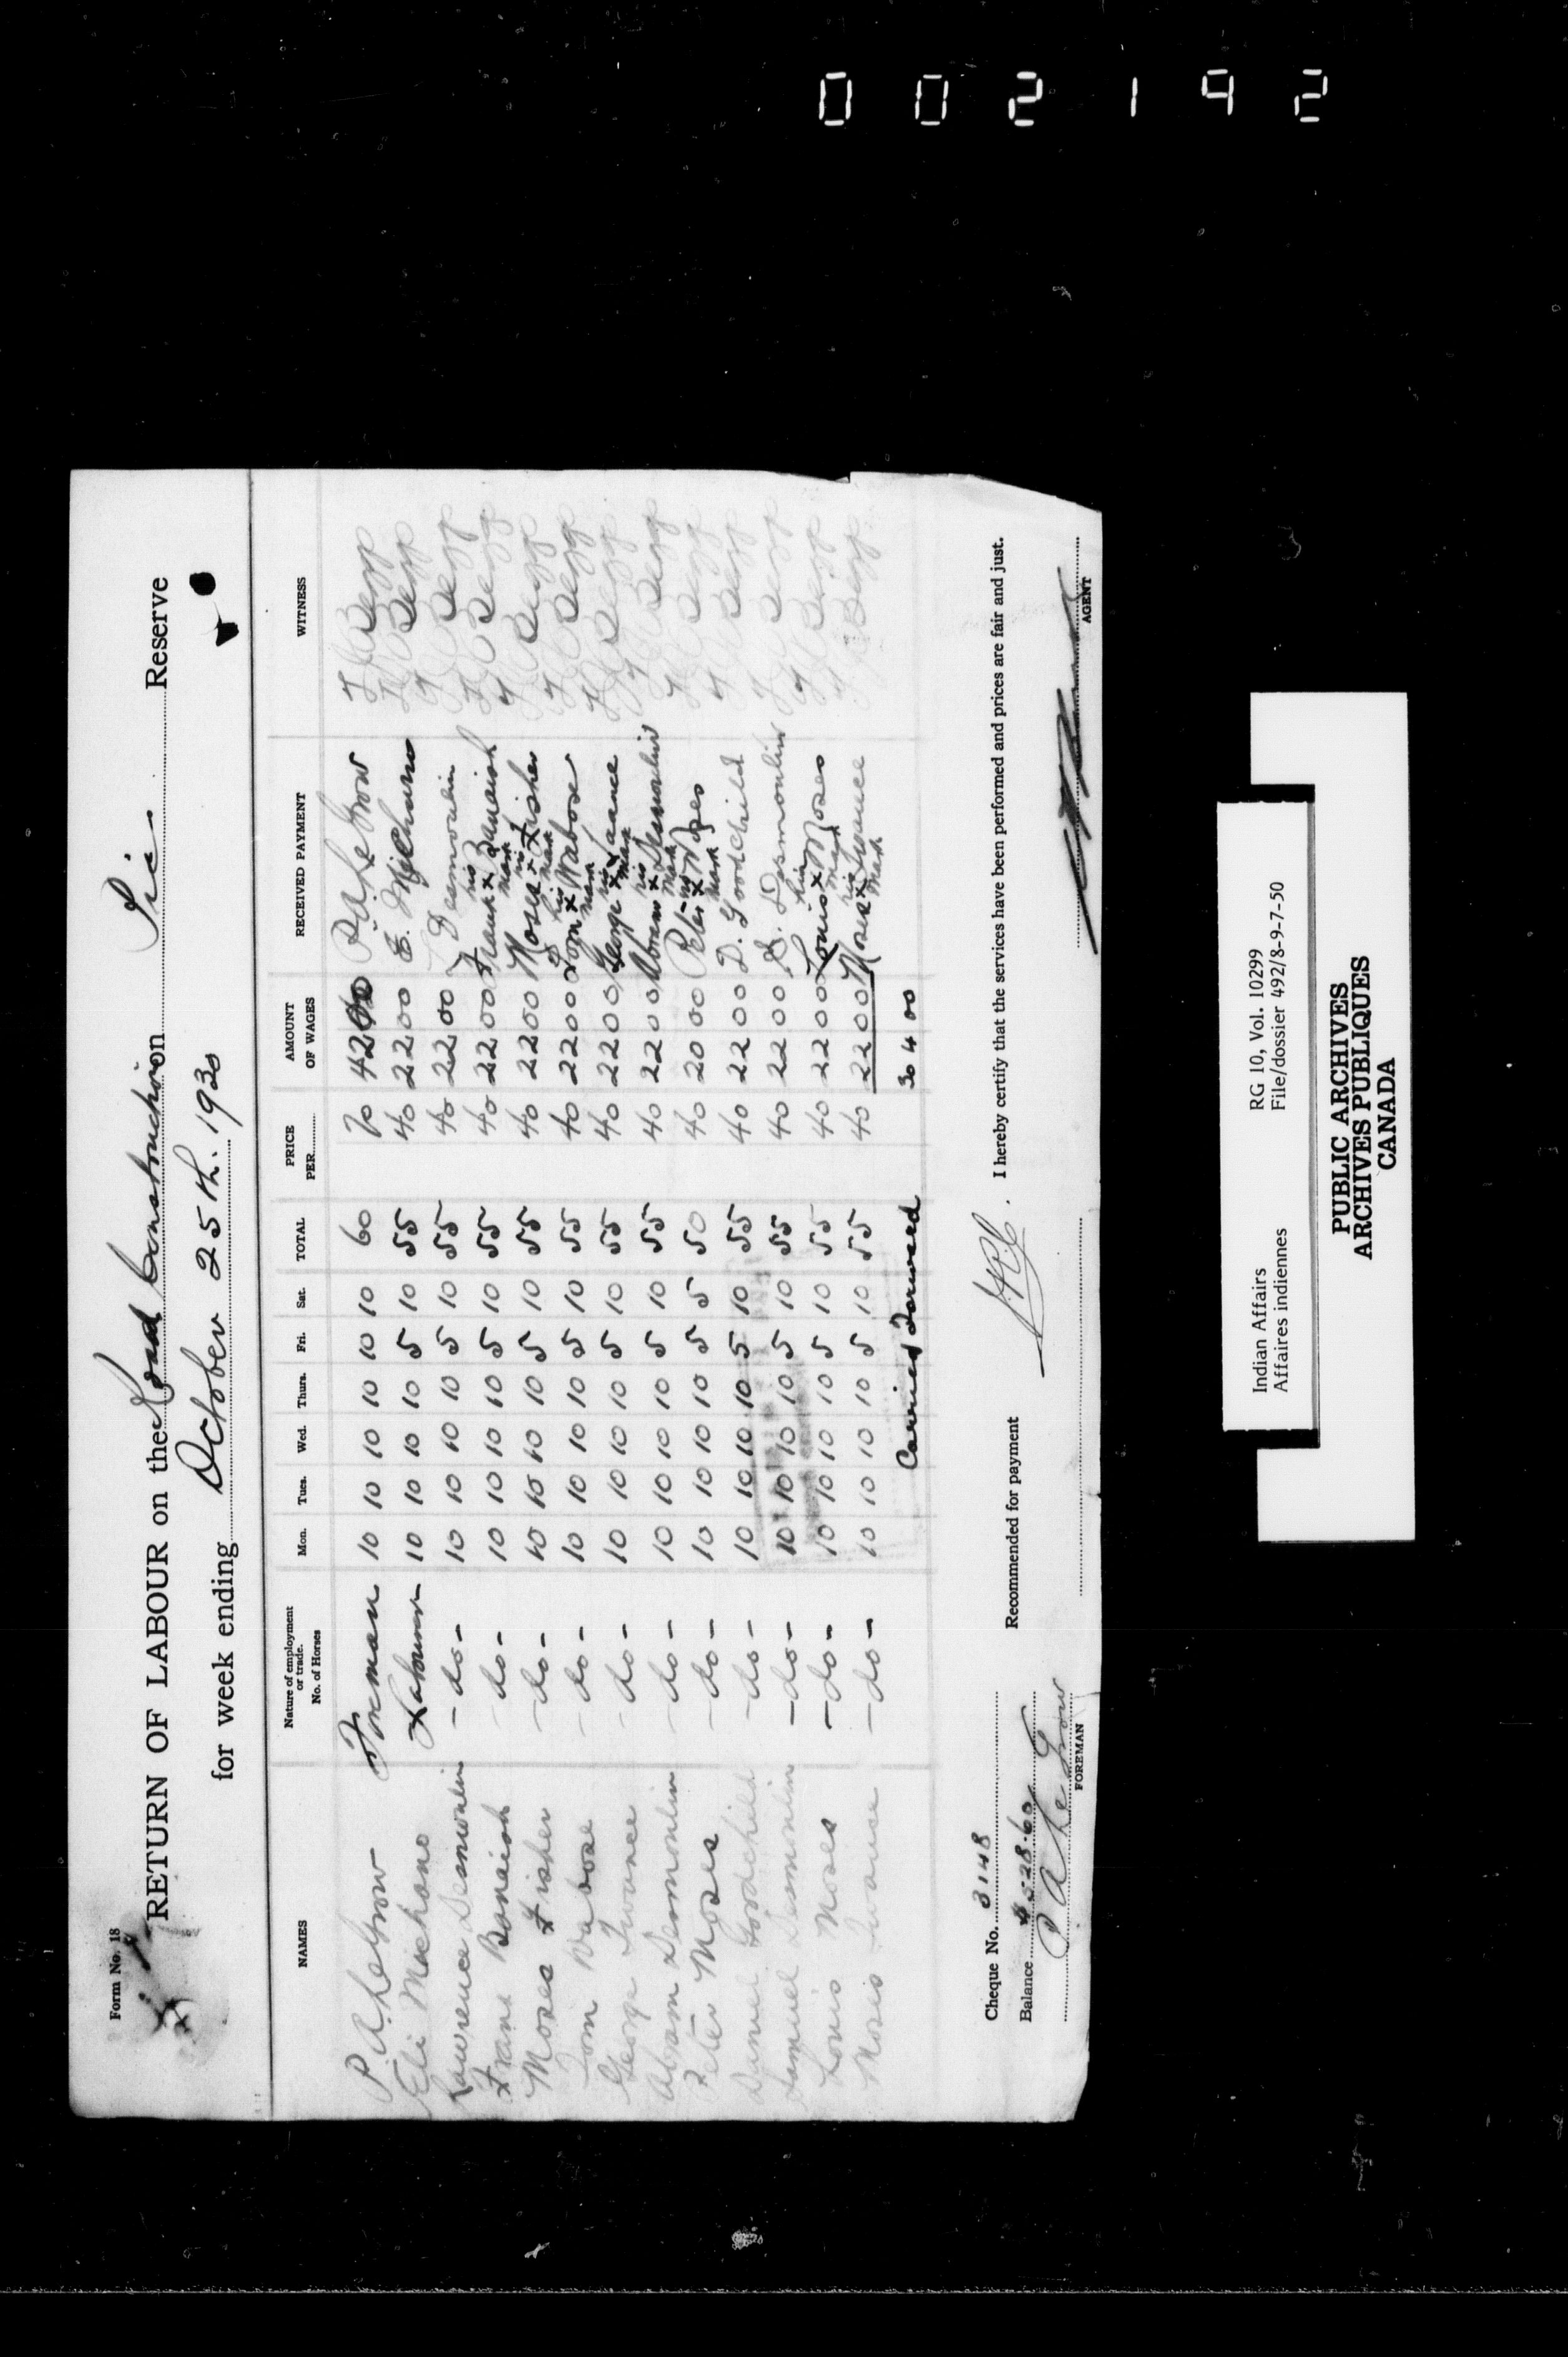 002192
Form No. 18
RETURN OF LABOUR on the Road Construction on Pic Reserve
for week ending October 25th. 1930
NAMES Nature of employment or trade. No. of Horses Mon. Tues. Wed. Thurs. Fri. Sat. TOTAL PRICE PER AMOUNT OF WAGES RECEIVED PAYMENT WITNESS
P. A. LeGrow Foreman 10 10 10 10 10 10 60 70 42 00 P. A. LeGrow
Eli Michano Labourer 10 10 10 10 5 10 55 40 22 00 E. Michano
Lawrence Desmoulin - do - 10 10 10 10 5 10 55 40 22 00 L Desmoulin
Frank Banaish - do - 10 10 10 10 5 10 55 40 22 00 Frank his x mark Banaish
Moses Fisher - do - 10 10 10 10 5 10 55 40 22 00 Moses his x mark Fisher
Tom Wabose - do - 10 10 10 10 5 10 55 40 22 00 Tom his x mark Wabose
George Twance - do - 10 10 10 10 5 10 55 40 22 00 George his x mark Twance
Abram Desmoulin - do - 10 10 10 10 5 10 55 40 22 00 Abram his x mark Desmoulin
Peter Moses - do - 10 10 10 10 5 5 50 40 20 00 Peter his x mark Moses
Daniel Goodchild - do - 10 10 10 10 5 10 55 40 22 00 D. Goodchild
Samuel Desmoulin - do - 10 10 10 10 5 10 55 40 22 00 S. Desmoulin
Louis Moses - do - 10 10 10 10 5 10 55 40 22 00 Louis his x mark Moses
Moses Twance - do - 10 10 10 10 5 10 55 40 22 00 Moses his x mark Twance
Carried Forward 304 00
Cheque No. 3148
Balance 528.60
P. A. LeGrow
FOREMAN
Recommended for payment
I hereby certify that the services have been performed and prices are fair and just.
AGENT
Indian Affairs RG 10, Vol. 10299
Affaires indiennes File/dossier 492/8-9-7-50
PUBLIC ARCHIVES
ARCHIVES PUBLIQUES
CANADA